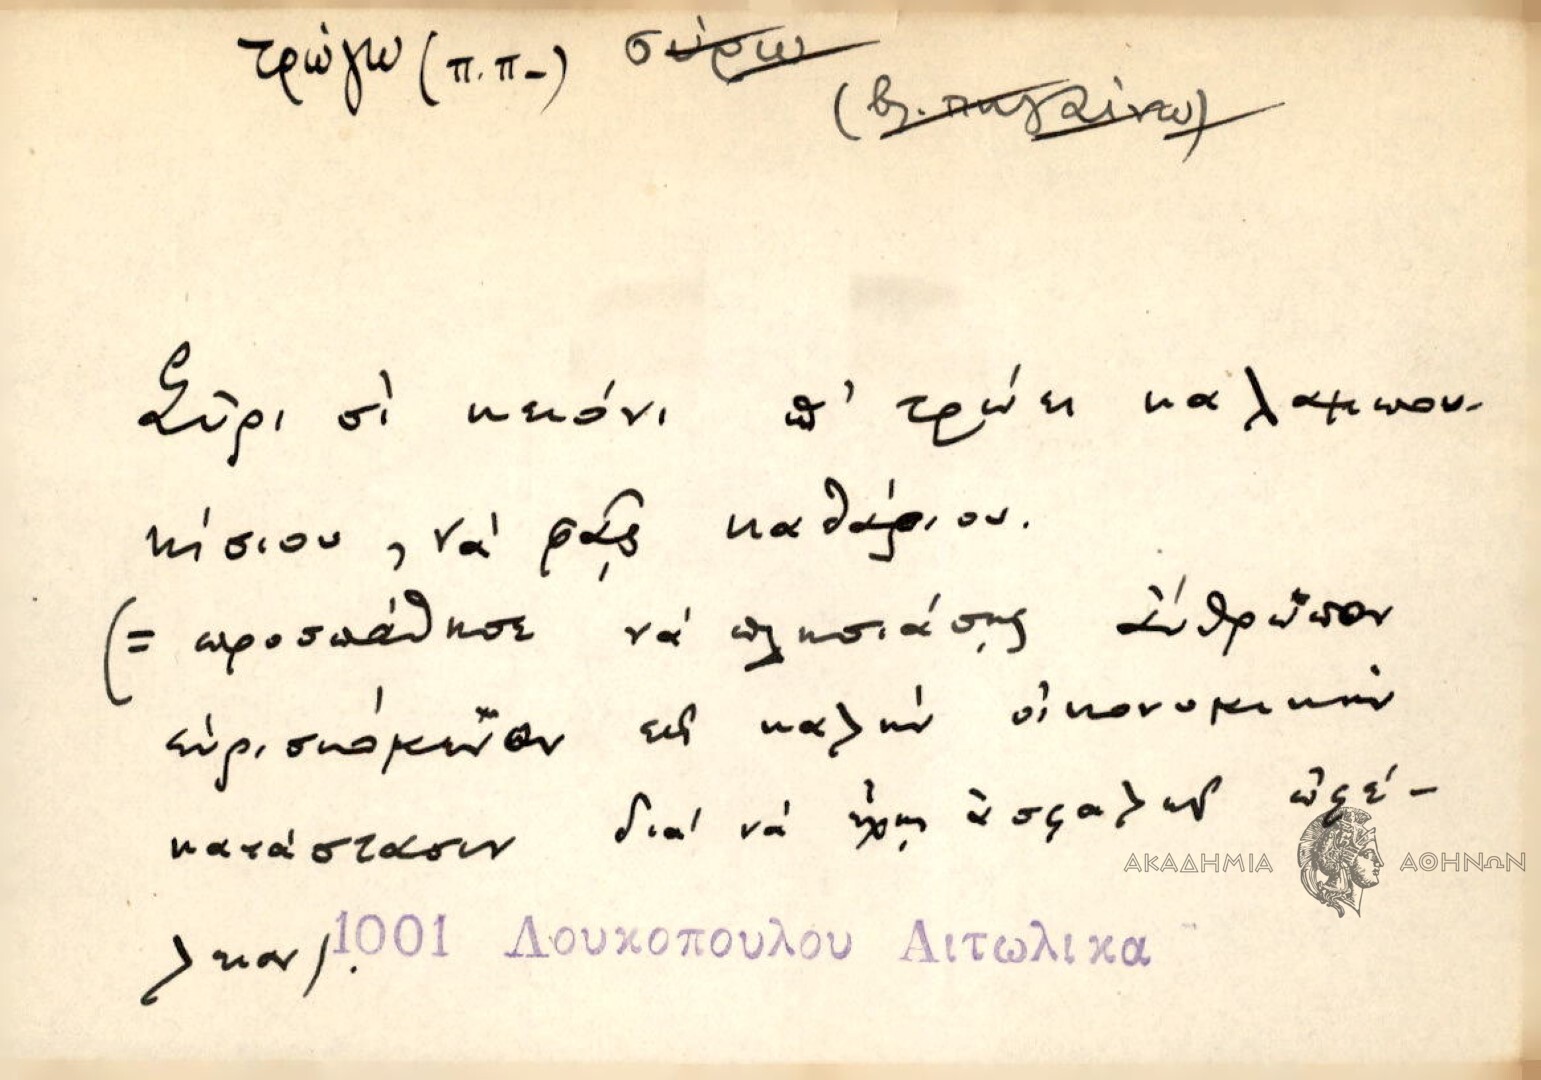 τρώγω (π.π-) σύρω
(βλ. πηγαίνω)
Σῦρι σὶ κειόνι π' τρώει καλαμπου-
κίσιου, νὰ φᾷς καθάριου.
(= προσπάθησε νὰ πλησιάσῃς ἄνθρωπον
εὑρισκόμενον εἰς καλὴν οἰκονομικὴν
κατάστασιν διὰ νὰ ἔχῃς ἀσφαλῆ ὠφέ-
λειαν).
1001 Λουκοπουλου Αιτωλικα
ΑΚΑΔΗΜΙΑ ΑΘΗΝΩΝ